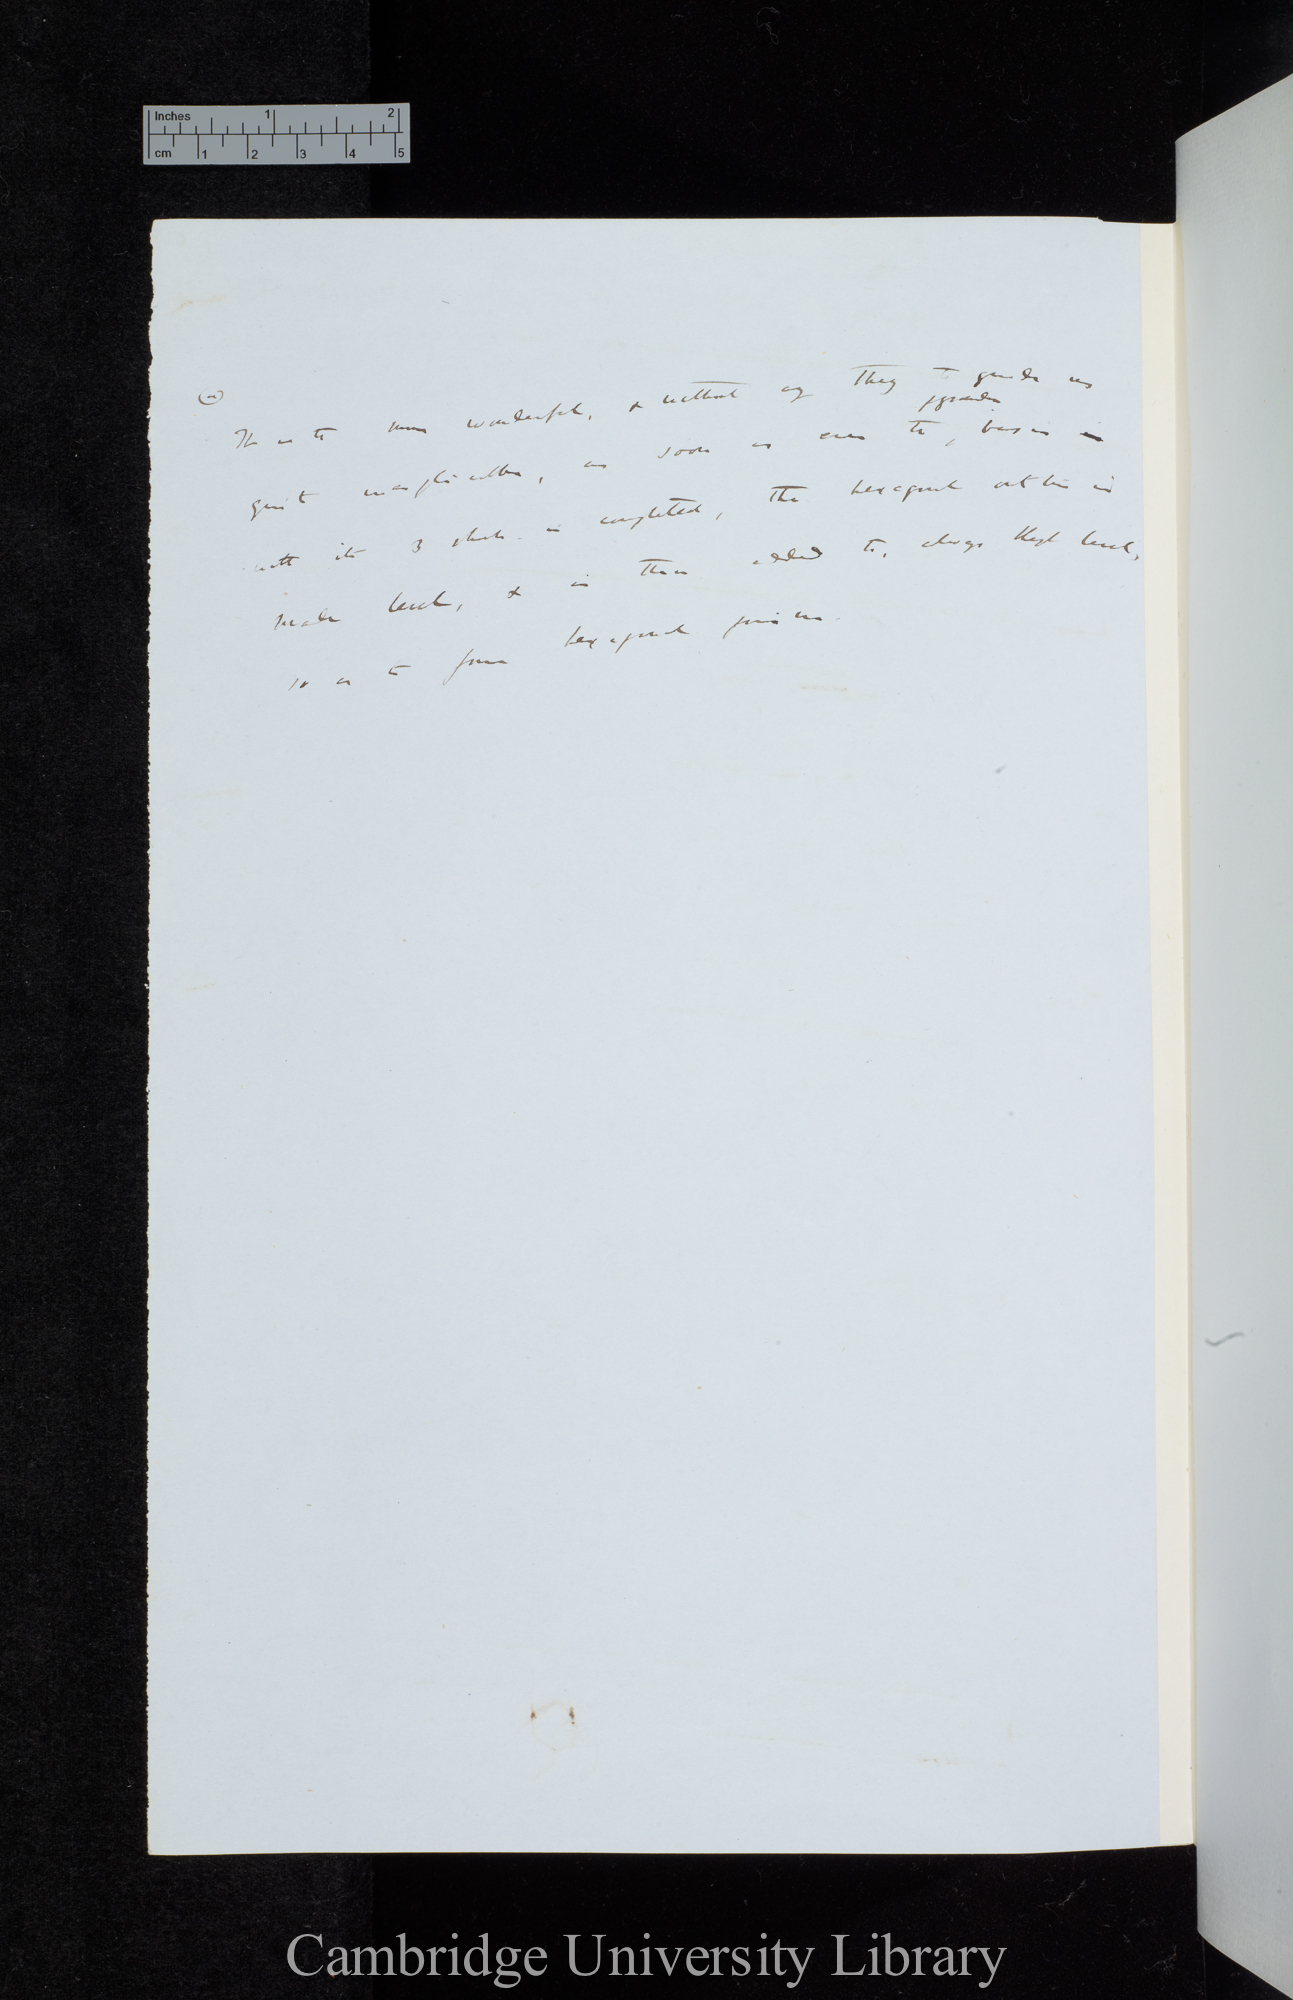 Inches 1 2
cm 1 2 3 4 5
(a)
It is to me wonderful, & without any thing to guide us
pyramidal
quite inexplicable, as soon as ever the, basis
with its 3 plates is completed, the hexagonal outline is
made level, & is then added to, always kept level,
so as to form hexagonal prism.
Cambridge University Library